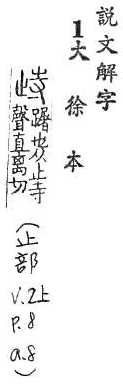 説文解字
1大徐本
歭 也从止寺
聲直离切
(止部
V.2上
P.8
a.8)